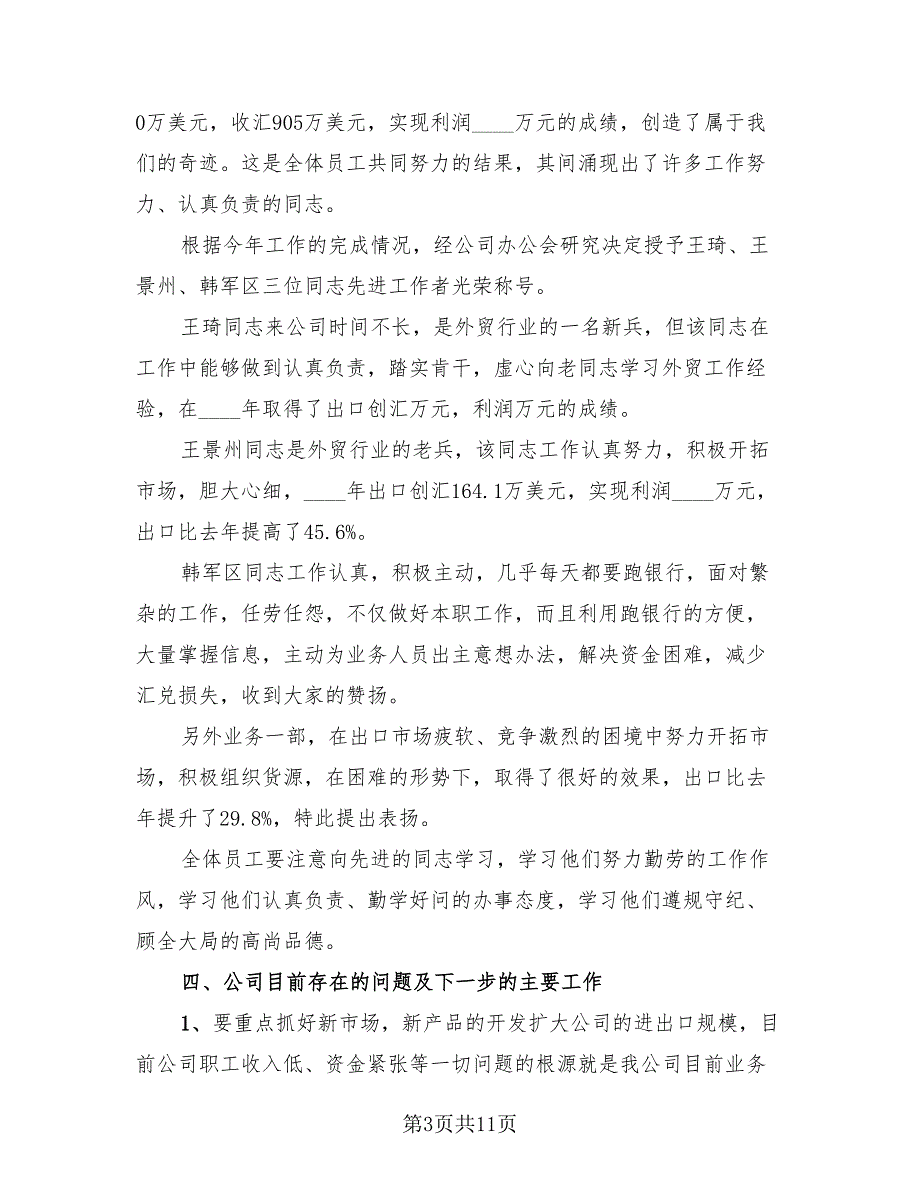 0万美元，收汇905万美元，实现利润____万元的成绩，创造了属于我
们的奇迹。这是全体员工共同努力的结果，其间涌现出了许多工作努
力、认真负责的同志。
根据今年工作的完成情况，经公司办公会研究决定授予王琦、王
景州、韩军区三位同志先进工作者光荣称号。
王琦同志来公司时间不长，是外贸行业的一名新兵，但该同志在
工作中能够做到认真负责，踏实肯干，虚心向老同志学习外贸工作经
验，在____年取得了出口创汇万元，利润万元的成绩。
王景州同志是外贸行业的老兵，该同志工作认真努力，积极开拓
市场，胆大心细，____年出口创汇164.1万美元，实现利润____万元，
出口比去年提高了45.6%。
韩军区同志工作认真，积极主动，几乎每天都要跑银行，面对繁
杂的工作，任劳任怨，不仅做好本职工作，而且利用跑银行的方便，
大量掌握信息，主动为业务人员出主意想办法，解决资金困难，减少
汇兑损失，收到大家的赞扬。
另外业务一部，在出口市场疲软、竞争激烈的困境中努力开拓市
场，积极组织货源，在困难的形势下，取得了很好的效果，出口比去
年提升了29.8%，特此提出表扬。
全体员工要注意向先进的同志学习，学习他们努力勤劳的工作作
风，学习他们认真负责、勤学好问的办事态度，学习他们遵规守纪、
顾全大局的高尚品德。
四、公司目前存在的问题及下一步的主要工作
1、要重点抓好新市场，新产品的开发扩大公司的进出口规模，目
前公司职工收入低、资金紧张等一切问题的根源就是我公司目前业务
第3页共11页